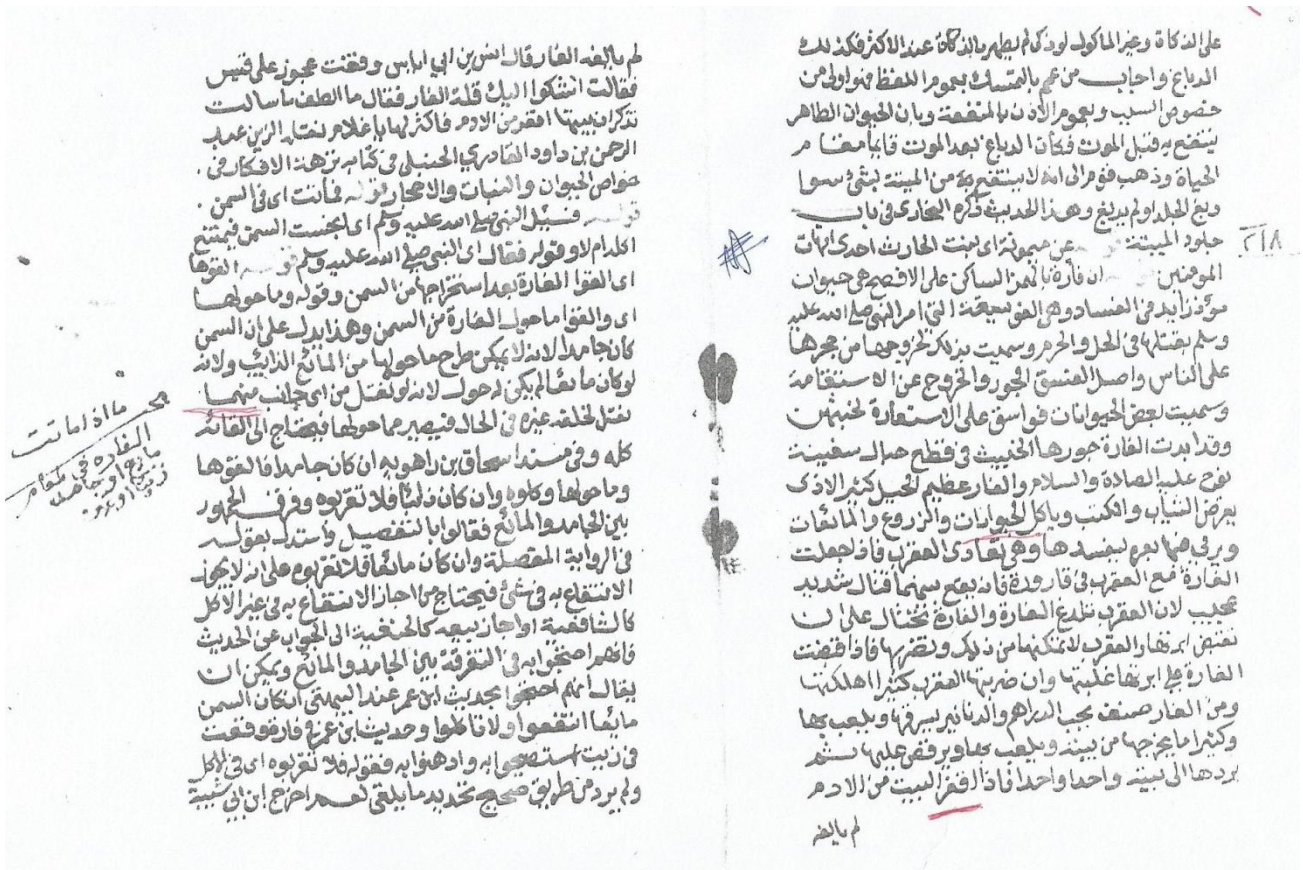 على الذكاة وغير الماكول لو ذكى لم يطهر بالذكاة عند الاكثر فكذلك
الدباغ واجاب من عمم بالتمسك بعموم اللفظ فهو اولى من
خصوص السبب وبعموم الاذن بالمنفعة وبان الحيوان الطاهر
ينتفع به قبل الموت فكان الدباغ بعد الموت قائما مقام
الحياة وذهب قوم الى انه لا ينتفع من الميتة بشئ سوا
دبغ الجلد او لم يدبغ وهذا الحديث ذكره البخارى في باب
جلود الميتة عن ميمونة اى بنت الحارث احدى امهات
المومنين ان فارة بالهمز الساكن على الافصح هى حيوان
موذ زايد في الفساد وهى الفويسقة التى امر النبى صلى الله عليه
وسلم بقتلها في الحل والحرم وسميت بذلك لخروجها من جحرها
على الناس واصل الفسق الجور والخروج عن الاستقامة
وسميت بعض الحيوانات فواسق على الاستعارة لخبثهن
وقد ابدت الفارة جورها الخبيث في قطع حبال سفينة
نوح عليه الصلاة والسلام والفار عظيم الحيل كثير الاذى
يعرض الثياب والكتب وياكل الحيوانات والزروع والمائعات
ويرمي فيها بعره ليفسدها وهى تعادى العقرب فاذا جعلت
الفارة مع العقرب في قارورة فانه يقع بينهما قتال شديد
عجيب لان العقرب تلدغ الفارة والفارة تحتال على ان
تقبض ابرتها والعقرب لا تمكنها من ذلك وتضربها فاذا قبضت
الفارة على ابرتها غلبتها وان ضربتها العقرب كثيرا اهلكتها
ومن الفار صنف يحب الدراهم والدنانير يسرقها ويلعب بها
وكثيرا ما يخرجها من بيته ويلعب بها ويرقص عليها ثم
يردها الى بيته واحدا واحدا فاذا اقفر البيت من الادم
لم يالفه
٢١٨
لم يالفه الفار قال انس بن ابي اياس وقفت عجوز على قيس
فقالت اشكوا اليك قلة الفار فقال ما الطف ما سالت
تذكر ان بيتها اقفر من الادم فاكثر لها يا غلام نقله الزين عبد
الرحمن بن داود القادري الحنبلى في كتابه نزهة الافكار في
خواص الحيوان والنبات والاحجار قوله فماتت اى في السمن
قوله فسيل النبى صلى الله عليه وسلم اى انجست السمن فيمتنع
اكله ام لا وقوله فقال اى النبى صلى الله عليه وسلم قوله القوها
اى القوا الفارة بعد استخراجها من السمن وقوله وما حولها
اى والقوا ما حول الفارة من السمن وهذا يدل على ان السمن
كان جامدا لانه لا يمكن طرح ما حولها من المائع الذايب ولانه
لو كان مائعا لم يكن له حول لانه لو نقل من اى جانب منهما
نقل لخلفه غيره في الحال فيصير مما حولها فيحتاج الى القائه
كله وفي مسند اسحاق بن راهويه ان كان جامدا فالقوها
وما حولها وكلوه وان كان ذائبا فلا تقربوه وفرق الجمهور
بين الجامد والمائع فقالوا بالتفصيل واستدل بقوله
في الرواية المفصلة وان كان مائعا فلا تقربوه على انه لا يجوز
الانتفاع به في شئ فيحتاج من اجاز الانتفاع به في غير الاكل
كالشافعية او اجاز بيعه كالحنفية الى الجواب عن الحديث
فانهم احتجوا به في التفرقة بين الجامد والمائع ويمكن ان
يقال انهم احتجوا بحديث ابن عمر عند البيهقى ان كان السمن
مائعا انتفعوا ولا تاكلوا وحديث ابن عمر في فارة وقعت
في زيت استصبحوا به وادهنوا به فقوله فلا تقربوه اى في الاكل
ولم يرد من طريق صحيح تحديد ما يلقى نعم اخرج ابن ابي شيبة
ما اذا ماتت
الفارة في
مايع او جامد